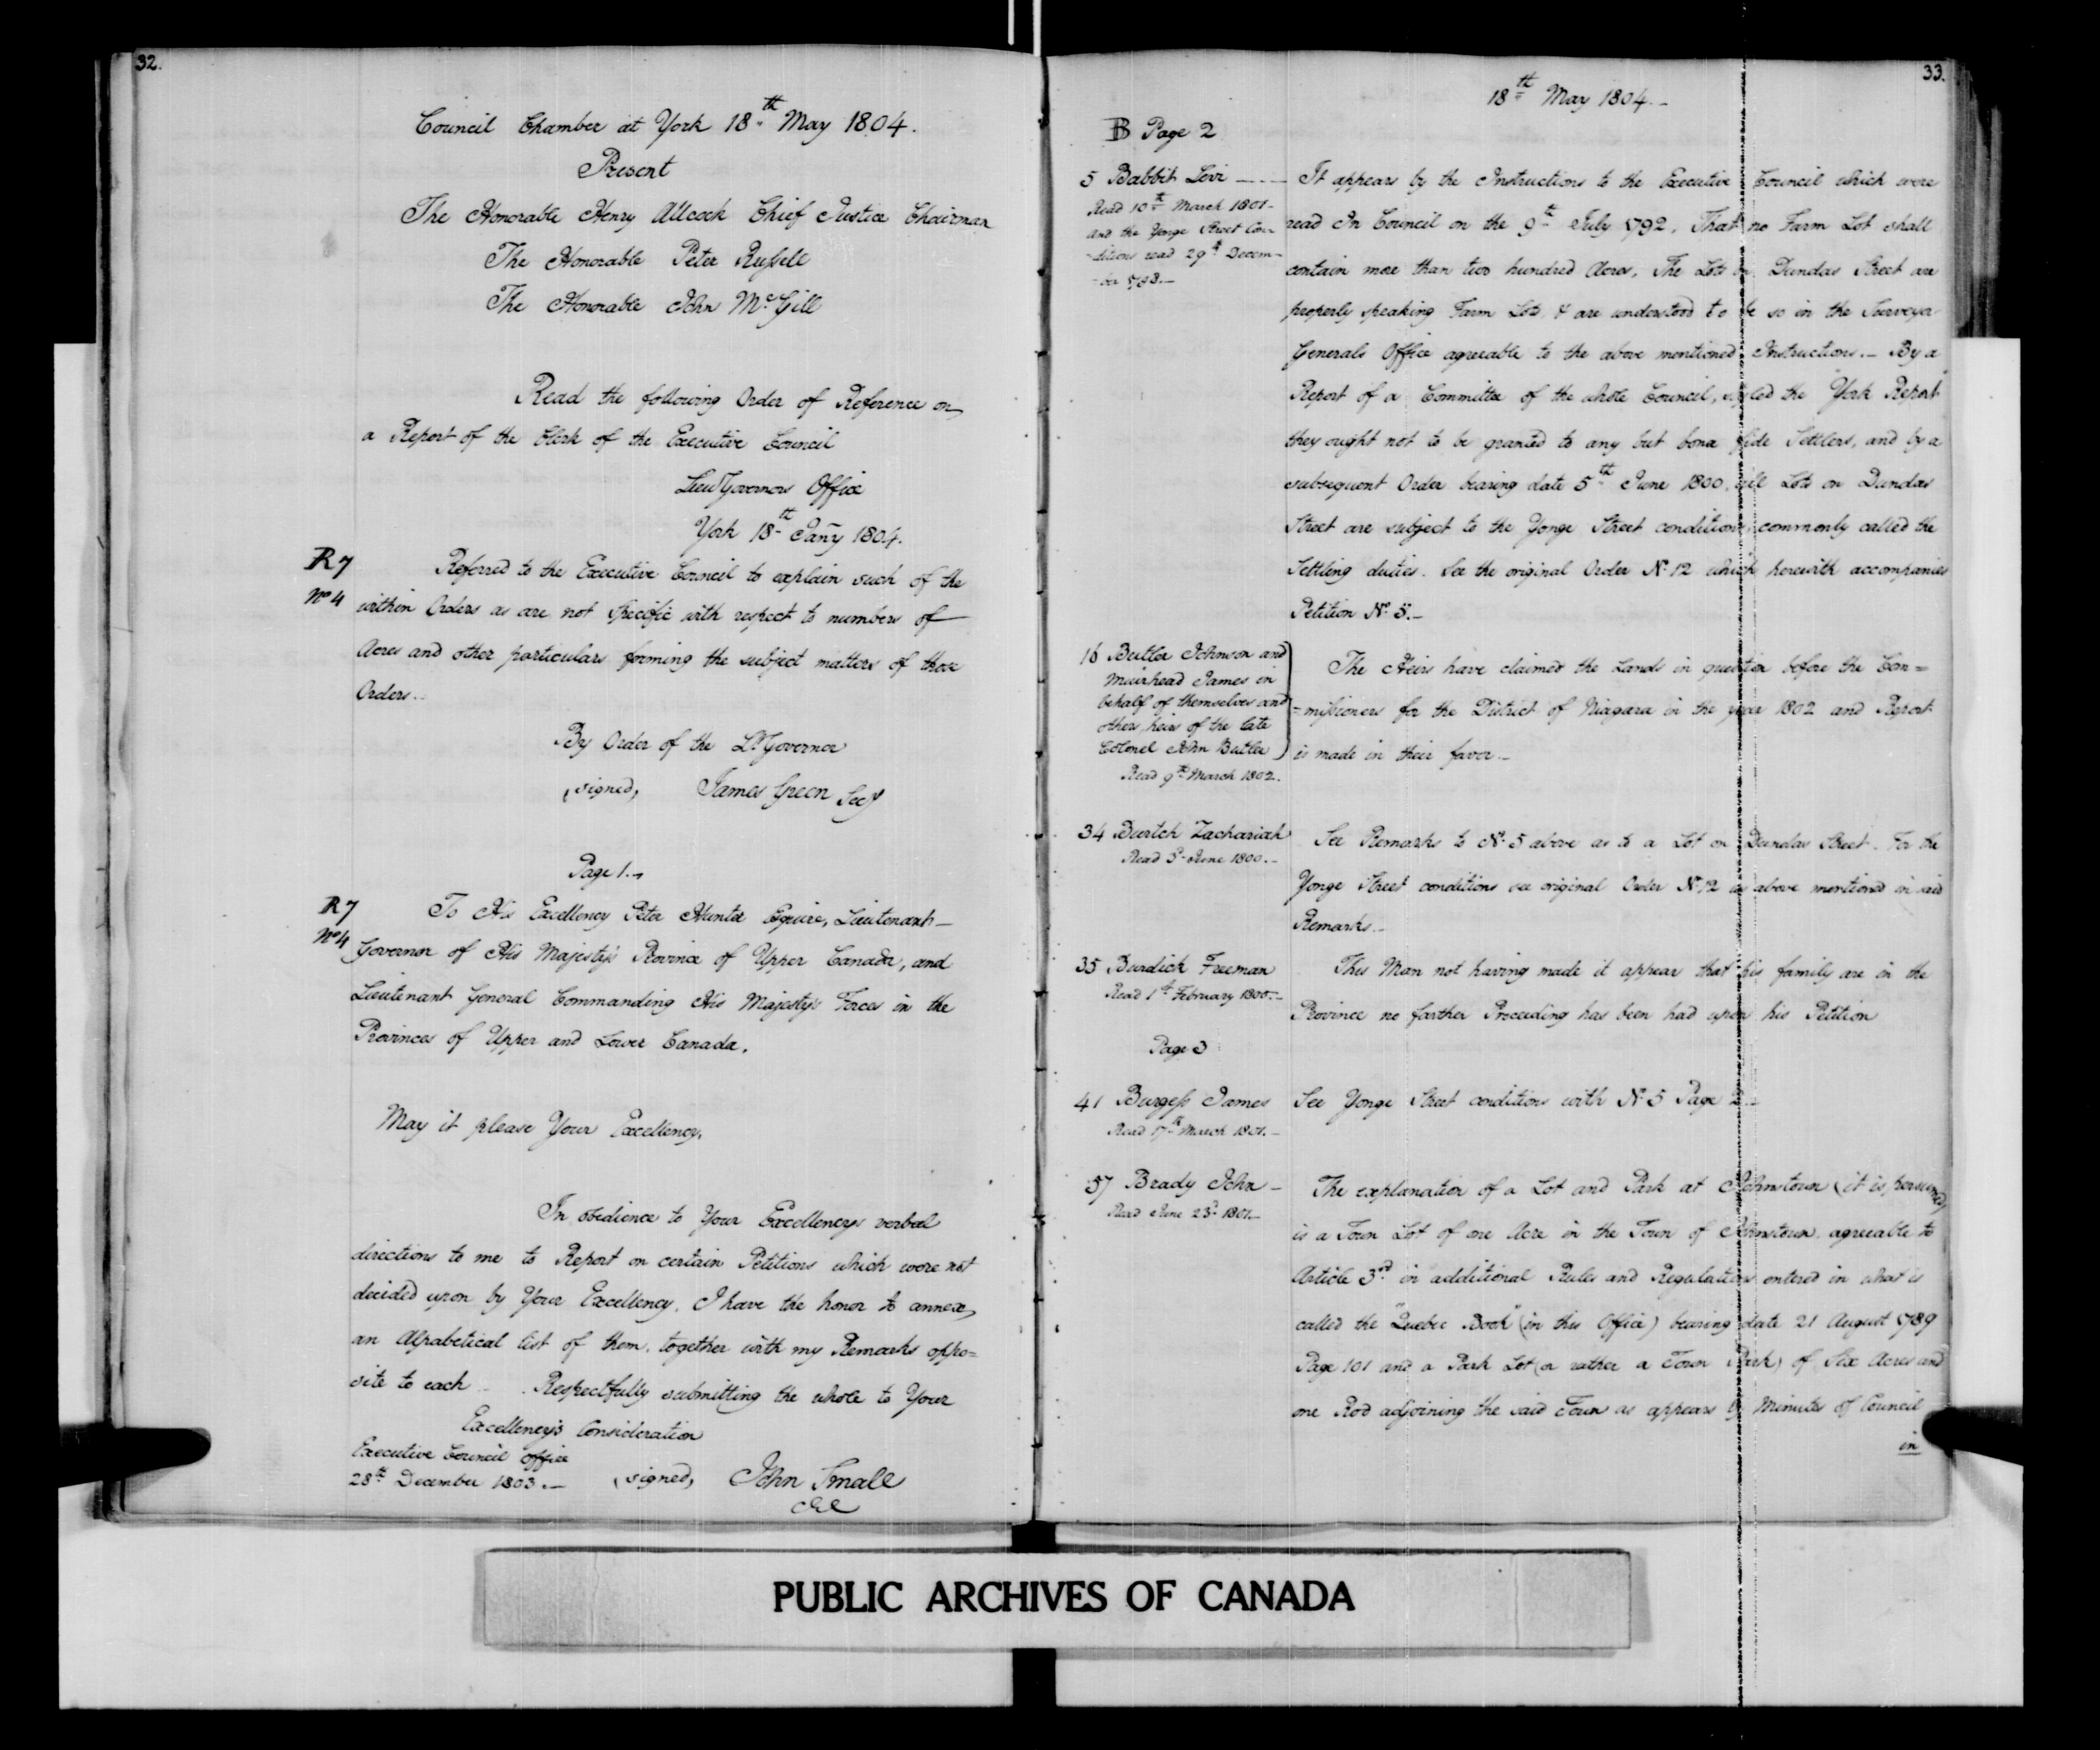 32.
Council Chamber at York 18th May 1804.
Present
The Honorable Henry Allcock Chief Justice Chairman
The Honorable Peter Russell
The Honorable John McGill
Read the following Order of Reference on
a Report of the Clerk of the Executive Council
Lieut Governors Office
York 18th Jany 1804.
R 7
No 4
Referred to the Executive Council to explain such of the
within Orders as are not specific with respect to numbers of
Acres and other particulars forming the subject matters of those
Orders.
By Order of the Lt Governor
(signed) James Green Secy
Page 1.
R 7
No 4
To His Excellency Peter Hunter Esquire, Lieutenant
Governor of His Majesty's Province of Upper Canada, and
Lieutenant General Commanding His Majesty's Forces in the
Provinces of Upper and Lower Canada.
May it please Your Excellency,
In obedience to Your Excellencys verbal
directions to me to Report on certain Petitions which were not
decided upon by Your Excellency, I have the honor to annex,
an Alphabetical list of them, together with my Remarks oppo=
site to each _ . Respectfully submitting the whole to Your
Excellency's Consideration
Executive Council Office
28th December 1803._
(signed) John Small
CEC
33.
18th May 1804._
B Page 2
5 Babbit Levi
Read 10th March 1801_
and the Yonge Street Con
-ditions read 29th Decem-
-ber 1798._
It appears by the Instructions to the Executive Council which were
read In Council on the 9th July 1792, That no Farm Lot shall
contain more than two hundred Acres, The Lots on Dundas Street are
properly speaking Farm Lots, & are understood to be so in the Surveyor
Generals Office agreeable to the above mentioned Instructions._ By a
Report of a Committee of the whole Council, styled the "York Report"
they ought not to be granted to any but bona fide Settlers, and by a
subsequent Order bearing date 5th June 1800, all Lots on Dundas
Street are subject to the Yonge Street conditions commonly called the
Settling duties. See the original Order No 12 which herewith accompanies
Petition No 5._
16 Butler Johnson and
Muirhead James in
behalf of themselves and
other heirs of the late
Colonel John Butler
Read 9th March 1802.
The Heirs have claimed the Lands in question before the Com=
=missioners for the District of Niagara in the year 1802 and Report
is made in their favor._
34 Burtch Zachariah
Read 5 June 1800._
See Remarks to No 5 above as to a Lot on Dundas Street. For the
Yonge Street conditions see original Order No 12 as above mentioned in said
Remarks._
35 Burdick Freeman
Read 1st February 1800._
This Man not having made it appear that his family are in the
Province no farther Proceeding has been had upon his Petition
Page 3
41 Burgess James
Read 17th March 1801._
See Yonge Street conditions with No 5 Page 2._
57 Brady John _
Read June 23d 1801._
The explanation of a Lot and Park at Johnstown (it is presumed)
is a Town Lot of one Acre in the Town of Johnstown agreeable to
Article 3rd in additional Rules and Regulations entered in what is
called the "Quebec Book" (in this Office) bearing date 21 August 1789
Page 101 and a Park Lot (or rather a Town Park) of Six Acres and
one Rod adjoining the said Town as appears by Minutes of Council
in
PUBLIC ARCHIVES OF CANADA